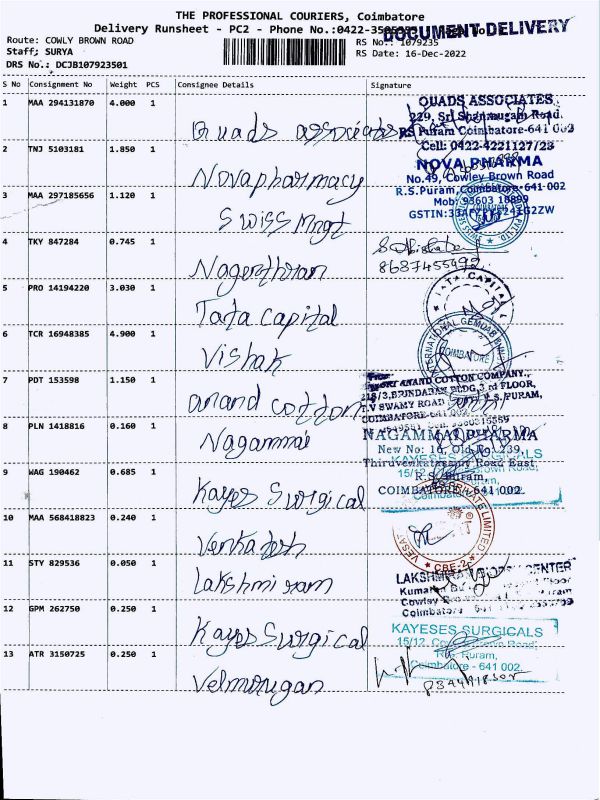 THE PROFESSIONAL COURIERS, Coimbatore
Delivery Runsheet - PC2 - Phone No.:0422-
DOCUMENT DELIVERY
Route: COWLY BROWN ROAD
RS No.: 1079235
Staff; SURYA
RS Date: 16-Dec-2022
DRS No.: DCJB107923501
S No Consignment No Weight PCS Consignee Details Signature
1 MAA 294131870 4.000 1
Quads associates
QUADS ASSOCIATES
229, Sri Shanmugam Road
RS Puram Coimbatore-641 002
Cell: 0422-4221127/23
2 TNJ 5103181 1.850 1
Novapharmacy
NOVA PHARMA
No.49, Cowley Brown Road
R.S.Puram, Coimbatore-641 002
Mob: 93603 18899
3 MAA 297185656 1.120 1
Swiss Mngt
4 TKY 847284 0.745 1
Nagenthran
8687455492
5 PRO 14194220 3.030 1
Tata capital
TATA CAPITAL
6 TCR 16948385 4.900 1
Vishak
INTERNATIONAL GEMDAB
COIMBATORE
7 PDT 153598 1.150 1
anand cotton
ANAND COTTON COMPANY.,
218/3,BRINDABAN BLDG,3rd FLOOR,
T.V SWAMY ROAD R.S. PURAM,
COIMBATORE-641
8 PLN 1418816 0.160 1
Nagammai
NAGAMMAI PHARMA
New No: 16, Old No.239,
Thiruvenkatasamy Road East,
R.S. Puram,
COIMBATORE-641 002
9 WAG 190462 0.685 1
Kayes Surgical
KAYESES SURGICALS
10 MAA 568418823 0.240 1
Venkatesh
PRIVATE LIMITED
CBE-2
11 STY 829536 0.050 1
Lakshmi ram
LAKSHMI CENTER
Cowley
Coimbatore
12 GPM 262750 0.250 1
Kayes Surgical
KAYESES SURGICALS
15/12, Cowley Brown Road,
R.S. Puram,
Coimbatore - 641 002.
13 ATR 3150725 0.250 1
Velmurugan